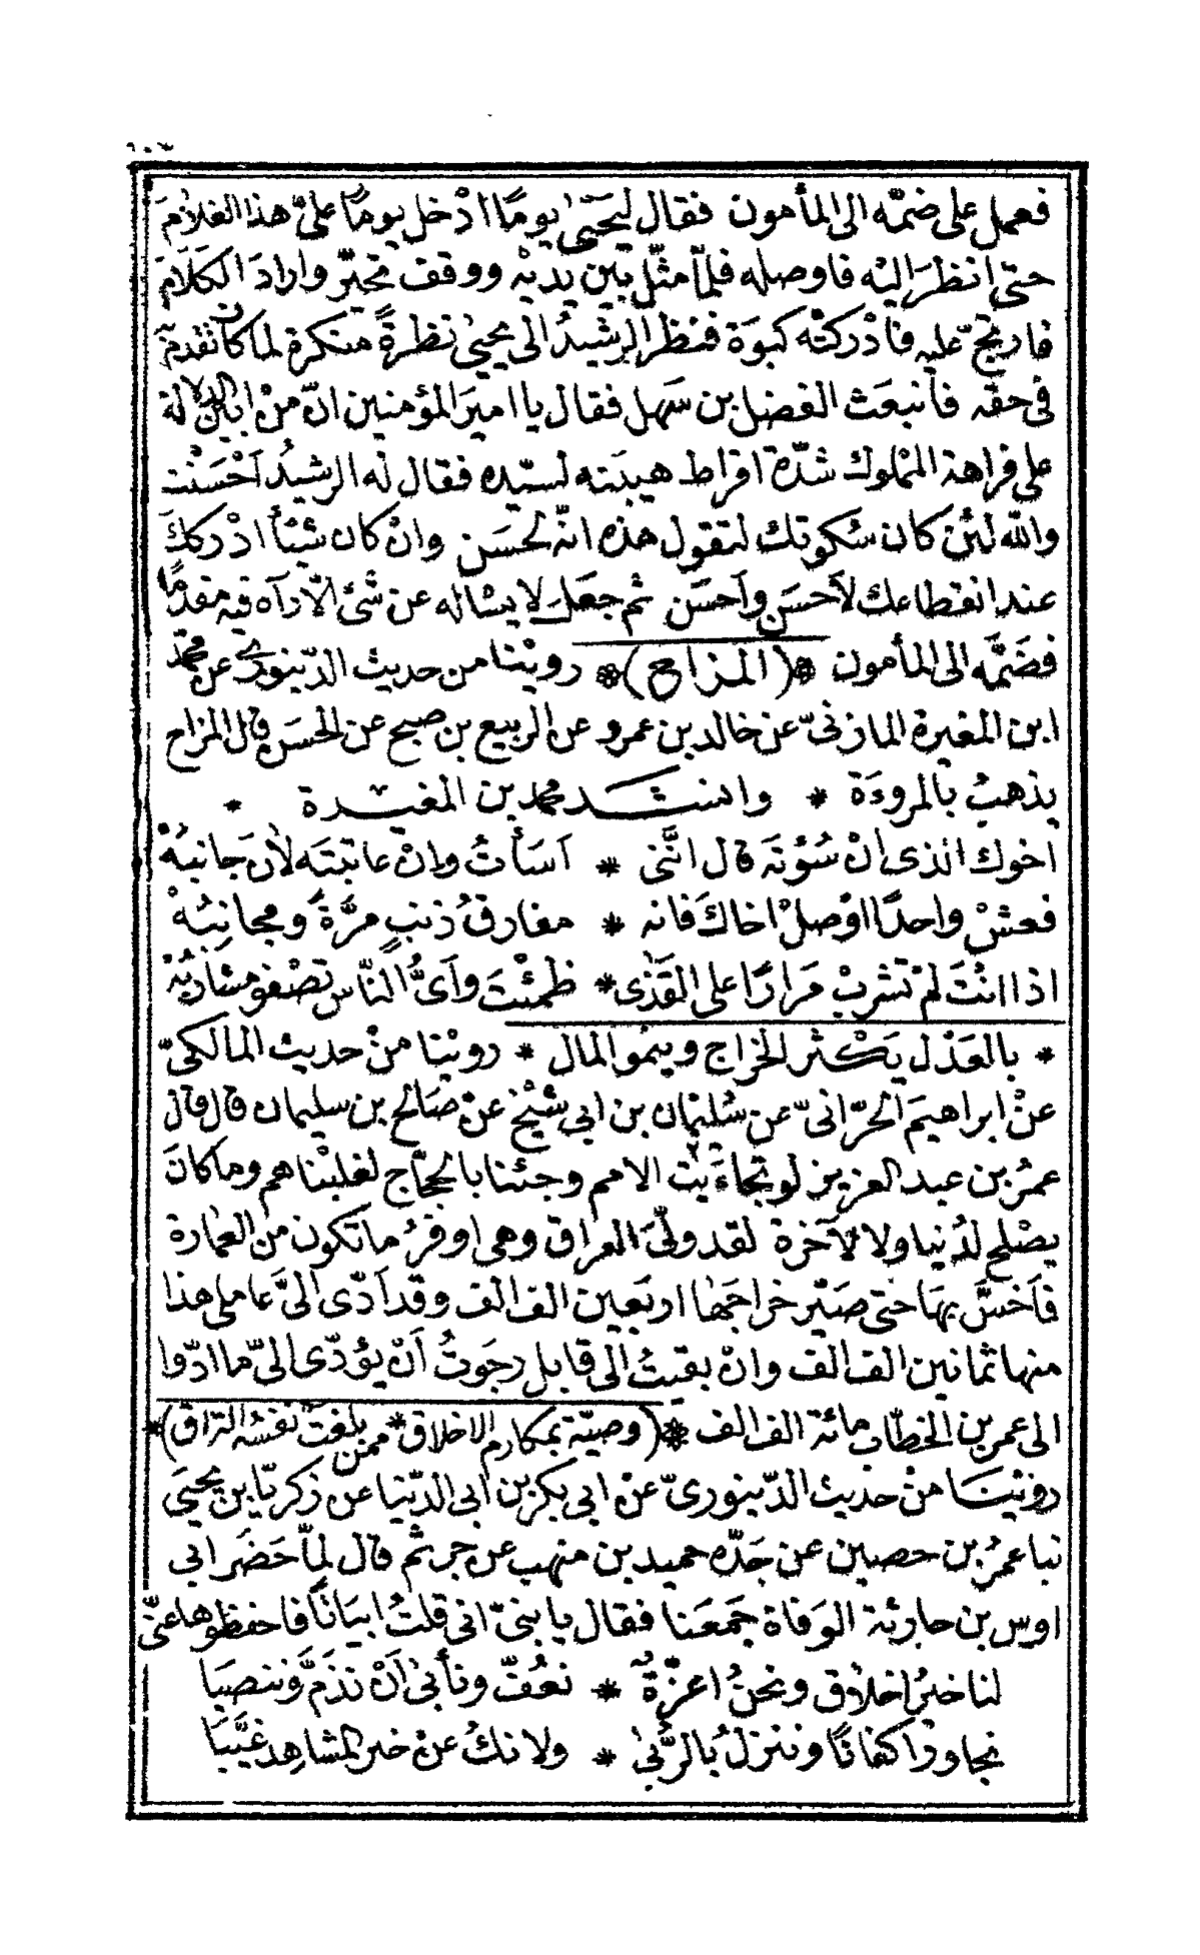 فعمل على ضمّه الى المأمون فقال ليَحيَىٰ يومًا ادْخل يومًا علىّ هذا الغلامَ
حتى انظرَ اليْه فاوصله فلمّا مثّل بَين يديْه ووقف تحيّر وارادَ الكَلَامَ
فارتجّ عليه فادْركتْه كبوَة فنظر الرشيدُ الى يحيىٰ نظرةً منكرة لما كان تقدّمَ
فى حقّه فانبعَث الفضل بن سَهل فقال يا اميرَ المؤمنين انّ منْ ابين الدلالة
على فراهة المملوك شدّة افراط هيبَته لسيّده فقال له الرشيدُ اَحْسَنْت
والله لئِنْ كان سُكوتك لتقول هذه انّه لحسَن وانْ كان شيْأً ادْرككَ
عند انقطاعك لاَحسَن واَحسَن ثم جعَل لا يسْاله عن شئ الّا رآه فيه مقدمًا
فضَمَّه الى المأمون * (المزاح) * روِيْنا من حديث الدّينورى عن محمّد
ابن المغيرة المازنىّ عن خالد بن عمرو عن الربيع بن صبيح عن الحسَن قال المزاح
يذهبُ بالمروءَة * وانشد محمد بن المغيرة *
اخوك الذى انْ سُؤْتَه قال انَّنى * اَسَأْتُ وانْ عاتبتَه لانَ جانبُهْ
فعشْ واحدًا اوْصلْ اخاكَ فانه * مفارقُ ذنبٍ مرَّةً ومجانِبُهْ
اذا انْتَ لمْ تشربْ مَرارًا على القَذٰى * ظمئْتَ واَىُّ النّاس تصْفو مشاربُهْ
* بالعَدْل يَكْثر الخراج وينمو المال * رويْنا منْ حديث المالكىّ
عنْ ابراهيمَ الحرّانىّ عن سُليمان بن ابى شيْخ عنْ صَالح بن سليمان قال قال
عمرُ بن عبد العزيز لو تجاءَيَت الامم وجئنا بالحجّاج لغلبْناهم وما كانَ
يصْلح لدُنيا ولا لآخرة لقد ولّىَ العراق وهى اوفرُ ما تكون من العمارة
فاَخسَّ بهَا حتى صيّر خراجَهٰا اربَعين الف الف وقد اَدّى الىَّ عاملى هذا
منها ثمانين الف الف وانْ بقيتُ الى قابل رجَوتُ اَنْ يؤدّى الىّ ما ادّوا
الى عمر بن الخطّاب مائة الف الف * (وصيّة بمكارم الاخلاق * ممن بلغتْ نفسُه التراق) *
روِيْنا منْ حديث الدّينورىّ عنْ ابى بكر بن ابى الدّنيا عن زكريّا بن يحيىَ
نبا عمرُ بن حصين عن جَدّه حميد بن منهب عن جرثم قال لمّا حَضَر ابى
اوس بن حارثة الوَفاة جمَعَنا فقال يا بنىّ انى قلتُ ابيَاتًا فاحفظوها عنّى
لنا خيرُ اخلاق ونحنُ اعزّةٌ * نعُفّ ونأبىٰ اَنْ نذَمَّ وننصبَا
نجاور اكفانًا وننزلُ بالرُّبىٰ * ولا نكُ عنْ خير المشاهِد غيَّبَا